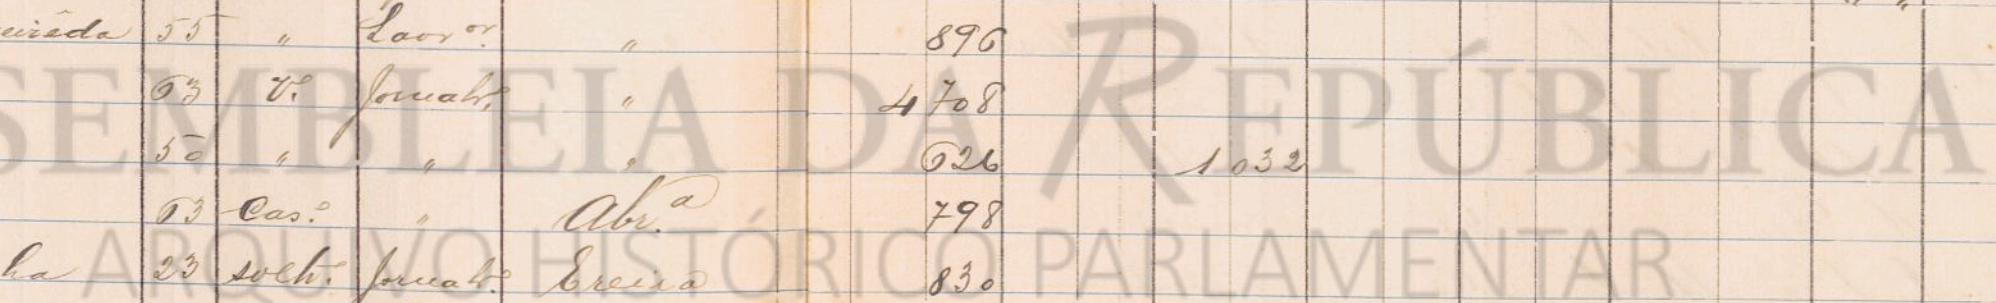 55 " Lavor. " 896
63 Vº. Jornalº. " 4708
50 " " " 626 1032
63 Casº. " Abr.ª 798
ha 23 solt.º Jornalº. Ereira 830
ASSEMBLEIA DA REPÚBLICA
ARQUIVO HISTÓRICO PARLAMENTAR